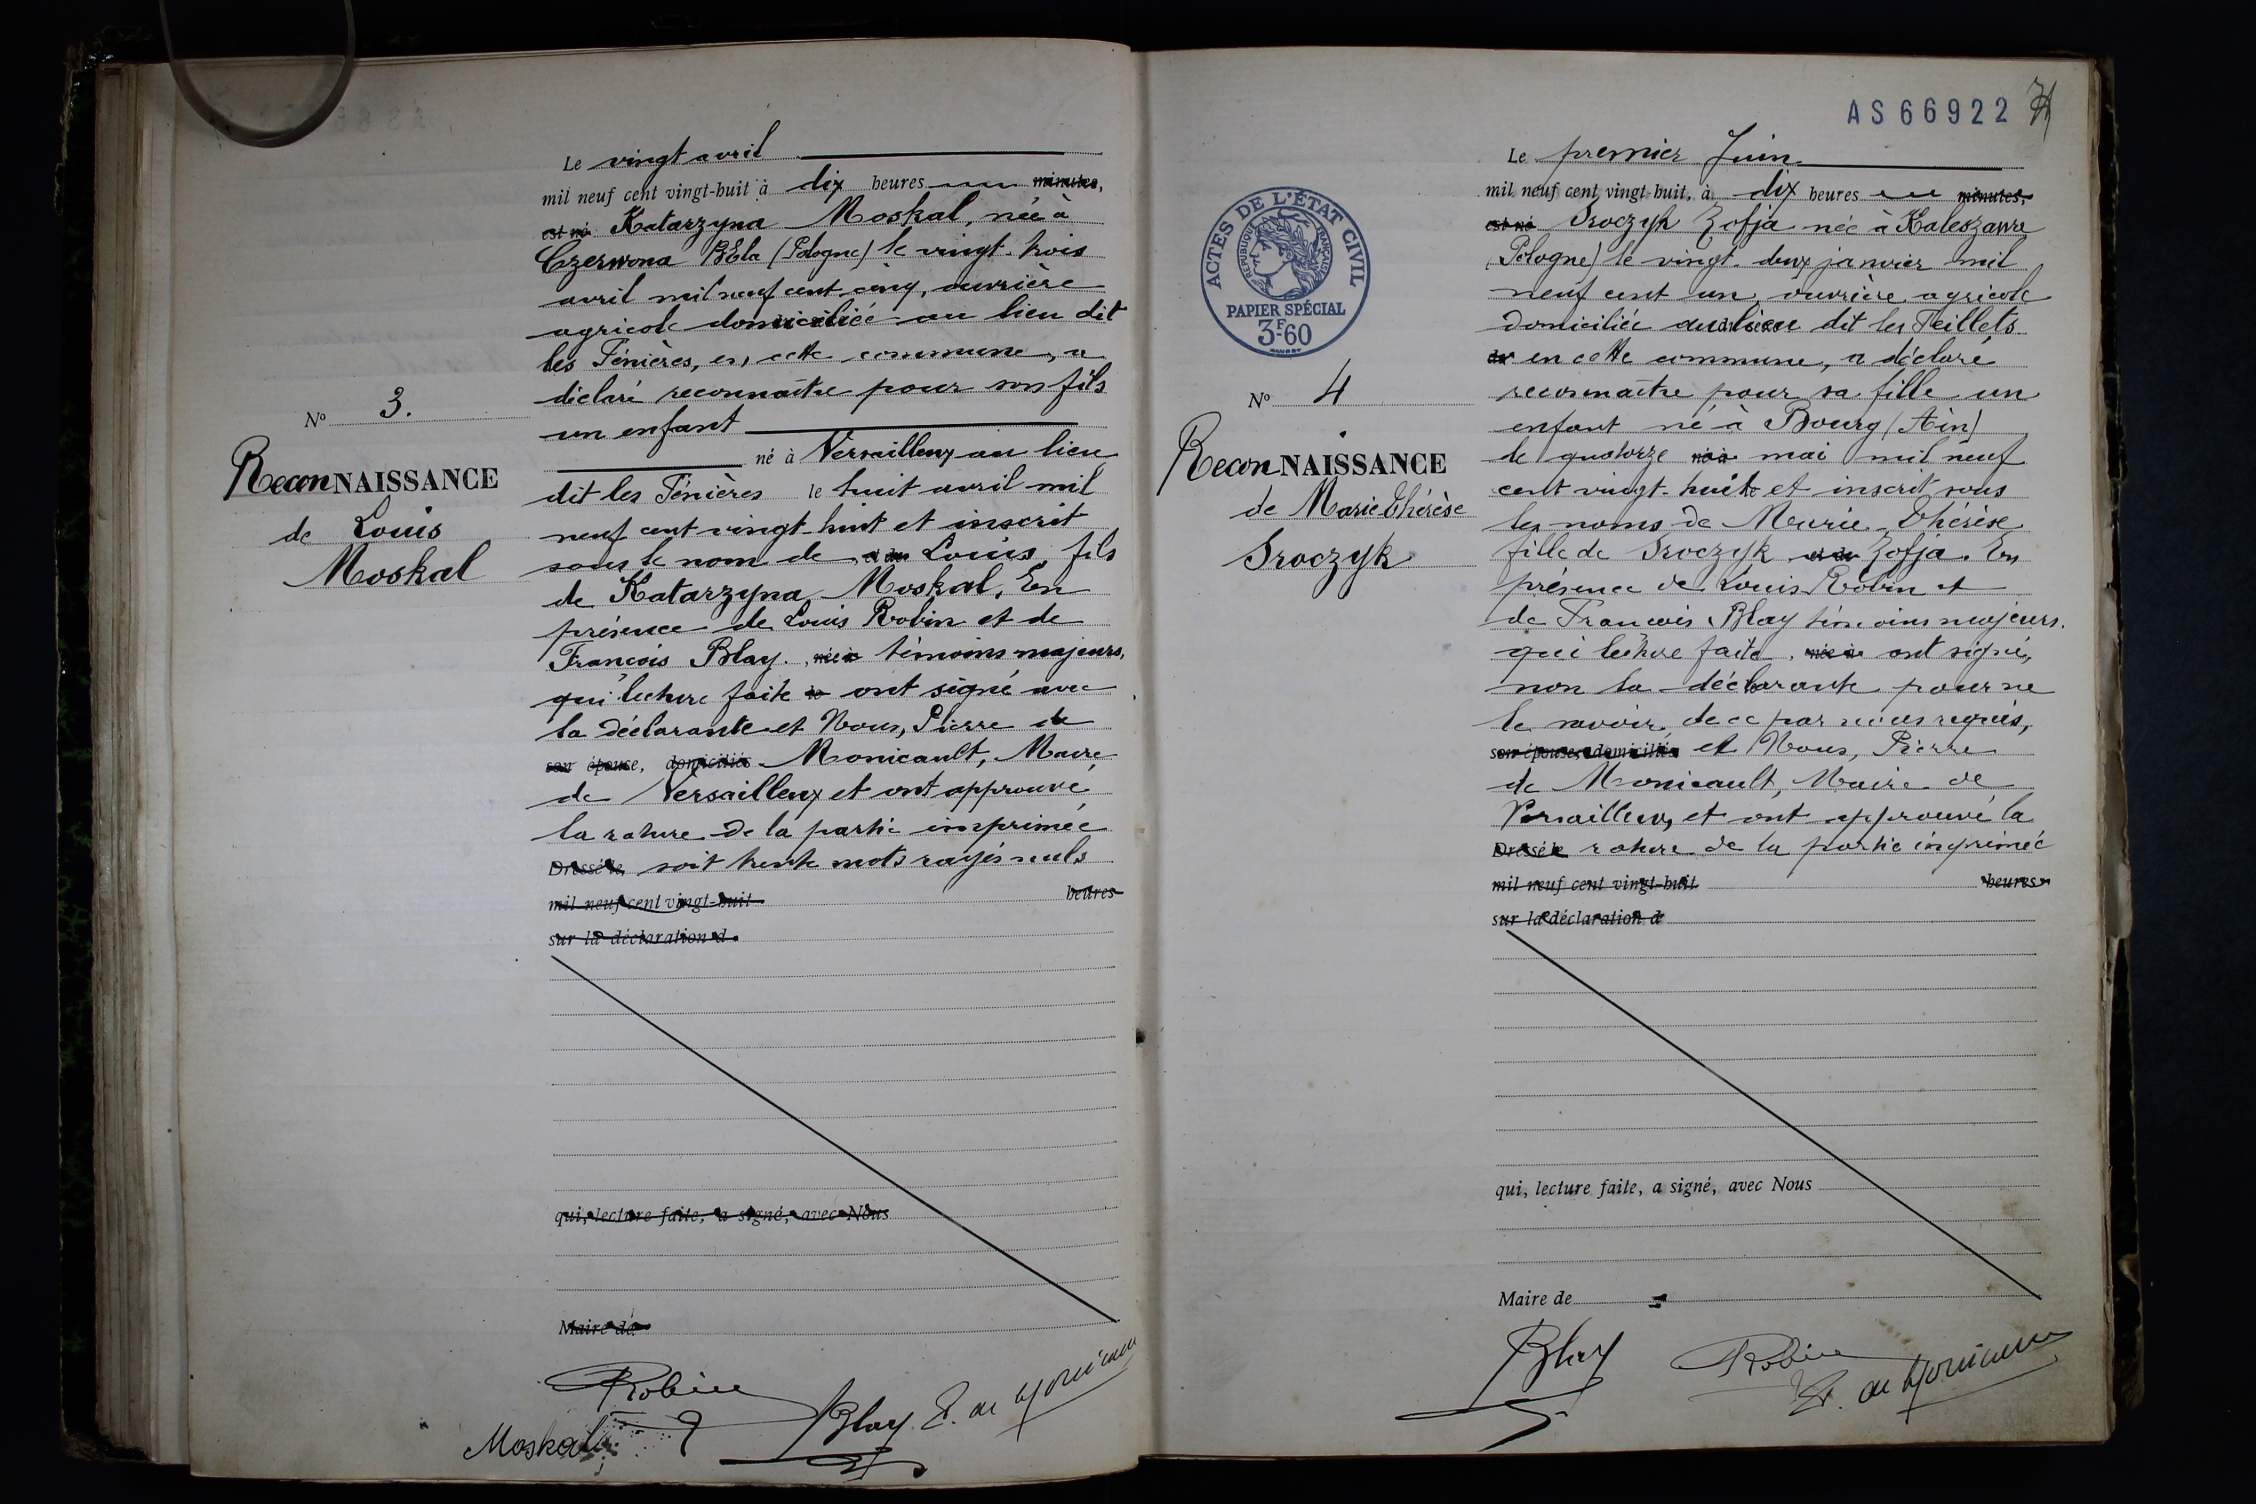 Le vingt avril
mil neuf cent vingt-huit à dix heures minutes,
est né Katarzyna Moskal, née à
Czerwona (Pologne) le vingt-trois
avril mil neuf cent cinq, ouvrière
agricole domiciliée au lieu dit
les Fénières, en cette commune, a
déclaré reconnaître pour son fils
un enfant
né à Versailleux au lieu
dit les Fénières le huit avril mil
neuf cent vingt-huit et inscrit
sous le nom de et de Louis fils
de Katarzyna Moskal. En
présence de Louis Robin et de
François Blay. né à témoins majeurs,
qui lecture faite le ont signé avec
la déclarante et Nous, Pierre de
son épouse, domiciliés Monicault, Maire
de Versailleux et ont approuvé
la rature de la partie imprimée
Dressé le, soit trente mots rayés nuls
mil neuf cent vingt-huit heures
sur la déclaration d
qui, lecture faite, a signé, avec Nous
Maire de
N° 3.
ReconNAISSANCE
de Louis
Moskal
Robin
Moskal
Blay P. de Monicault
AS66922
ACTES DE L'ÉTAT CIVIL
RÉPUBLIQUE FRANÇAISE
PAPIER SPÉCIAL
3F60
N° 4
ReconNAISSANCE
de Marie Thérèse
Sroczyk
Le premier Juin
mil neuf cent vingt-huit, à dix heures minutes,
est né Sroczyk Zofja née à Kaleszawa
(Pologne) le vingt-deux janvier mil
neuf cent un, ouvrière agricole
domiciliée au lieu dit les Teillets
en cette commune, a déclaré
reconnaître pour sa fille un
enfant né à Bourg (Ain)
le quatorze né à mai mil neuf
cent vingt-huit et inscrit sous
les noms de Marie-Thérèse
fille de Sroczyk et de Zofja. En
présence de Louis Robin et
de François Blay témoins majeurs.
qui lecture faite, né à ont signé,
non la déclarante pour ne
le savoir, de ce par nous requis,
son épouse, domiciliés et Nous, Pierre
de Monicault, Maire de
Versailleux, et ont approuvé la
Dressé le rature de la partie imprimée
mil neuf cent vingt-huit heures
sur la déclaration d
qui, lecture faite, a signé, avec Nous
Maire de
Blay Robin
P. de Monicault